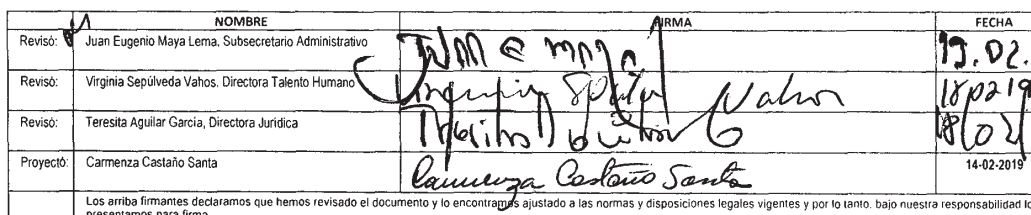 NOMBRE FIRMA FECHA
Revisó: Juan Eugenio Maya Lema, Subsecretario Administrativo 19.02.
Revisó: Virginia Sepúlveda Vahos. Directora Talento Humano Virginia Vahos 180219
Revisó: Teresita Aguilar García, Directora Jurídica Teresita 18/02/
Proyectó: Carmenza Castaño Santa Carmenza Castaño Santa 14-02-2019
Los arriba firmantes declaramos que hemos revisado el documento y lo encontramos ajustado a las normas y disposiciones legales vigentes y por lo tanto, bajo nuestra responsabilidad lo
presentamos para firma